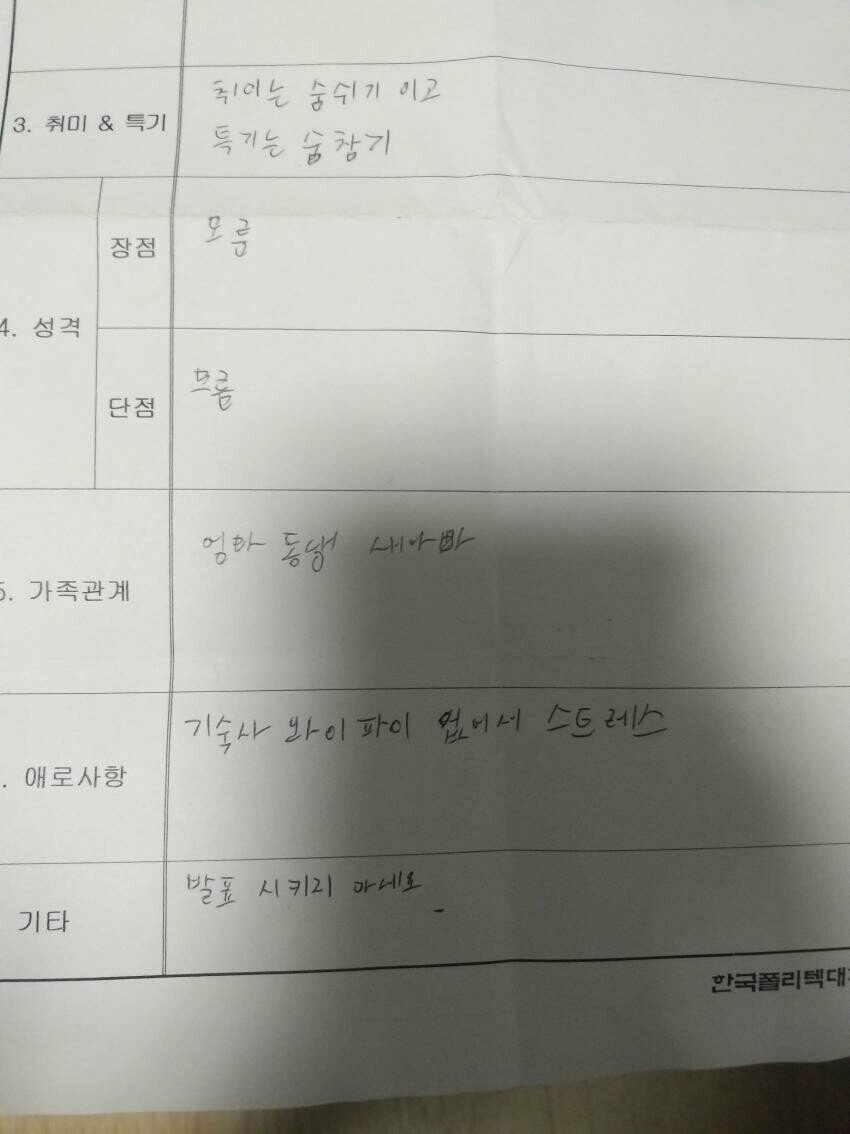 3. 취미 & 특기
취미는 숨쉬기 이고
특기는 숨참기
4. 성격
장점
모름
단점
모름
5. 가족관계
엄마 동생 새아빠
. 애로사항
기숙사 와이파이 없어서 스트레스
기타
발표 시키지 마세요
한국폴리텍대